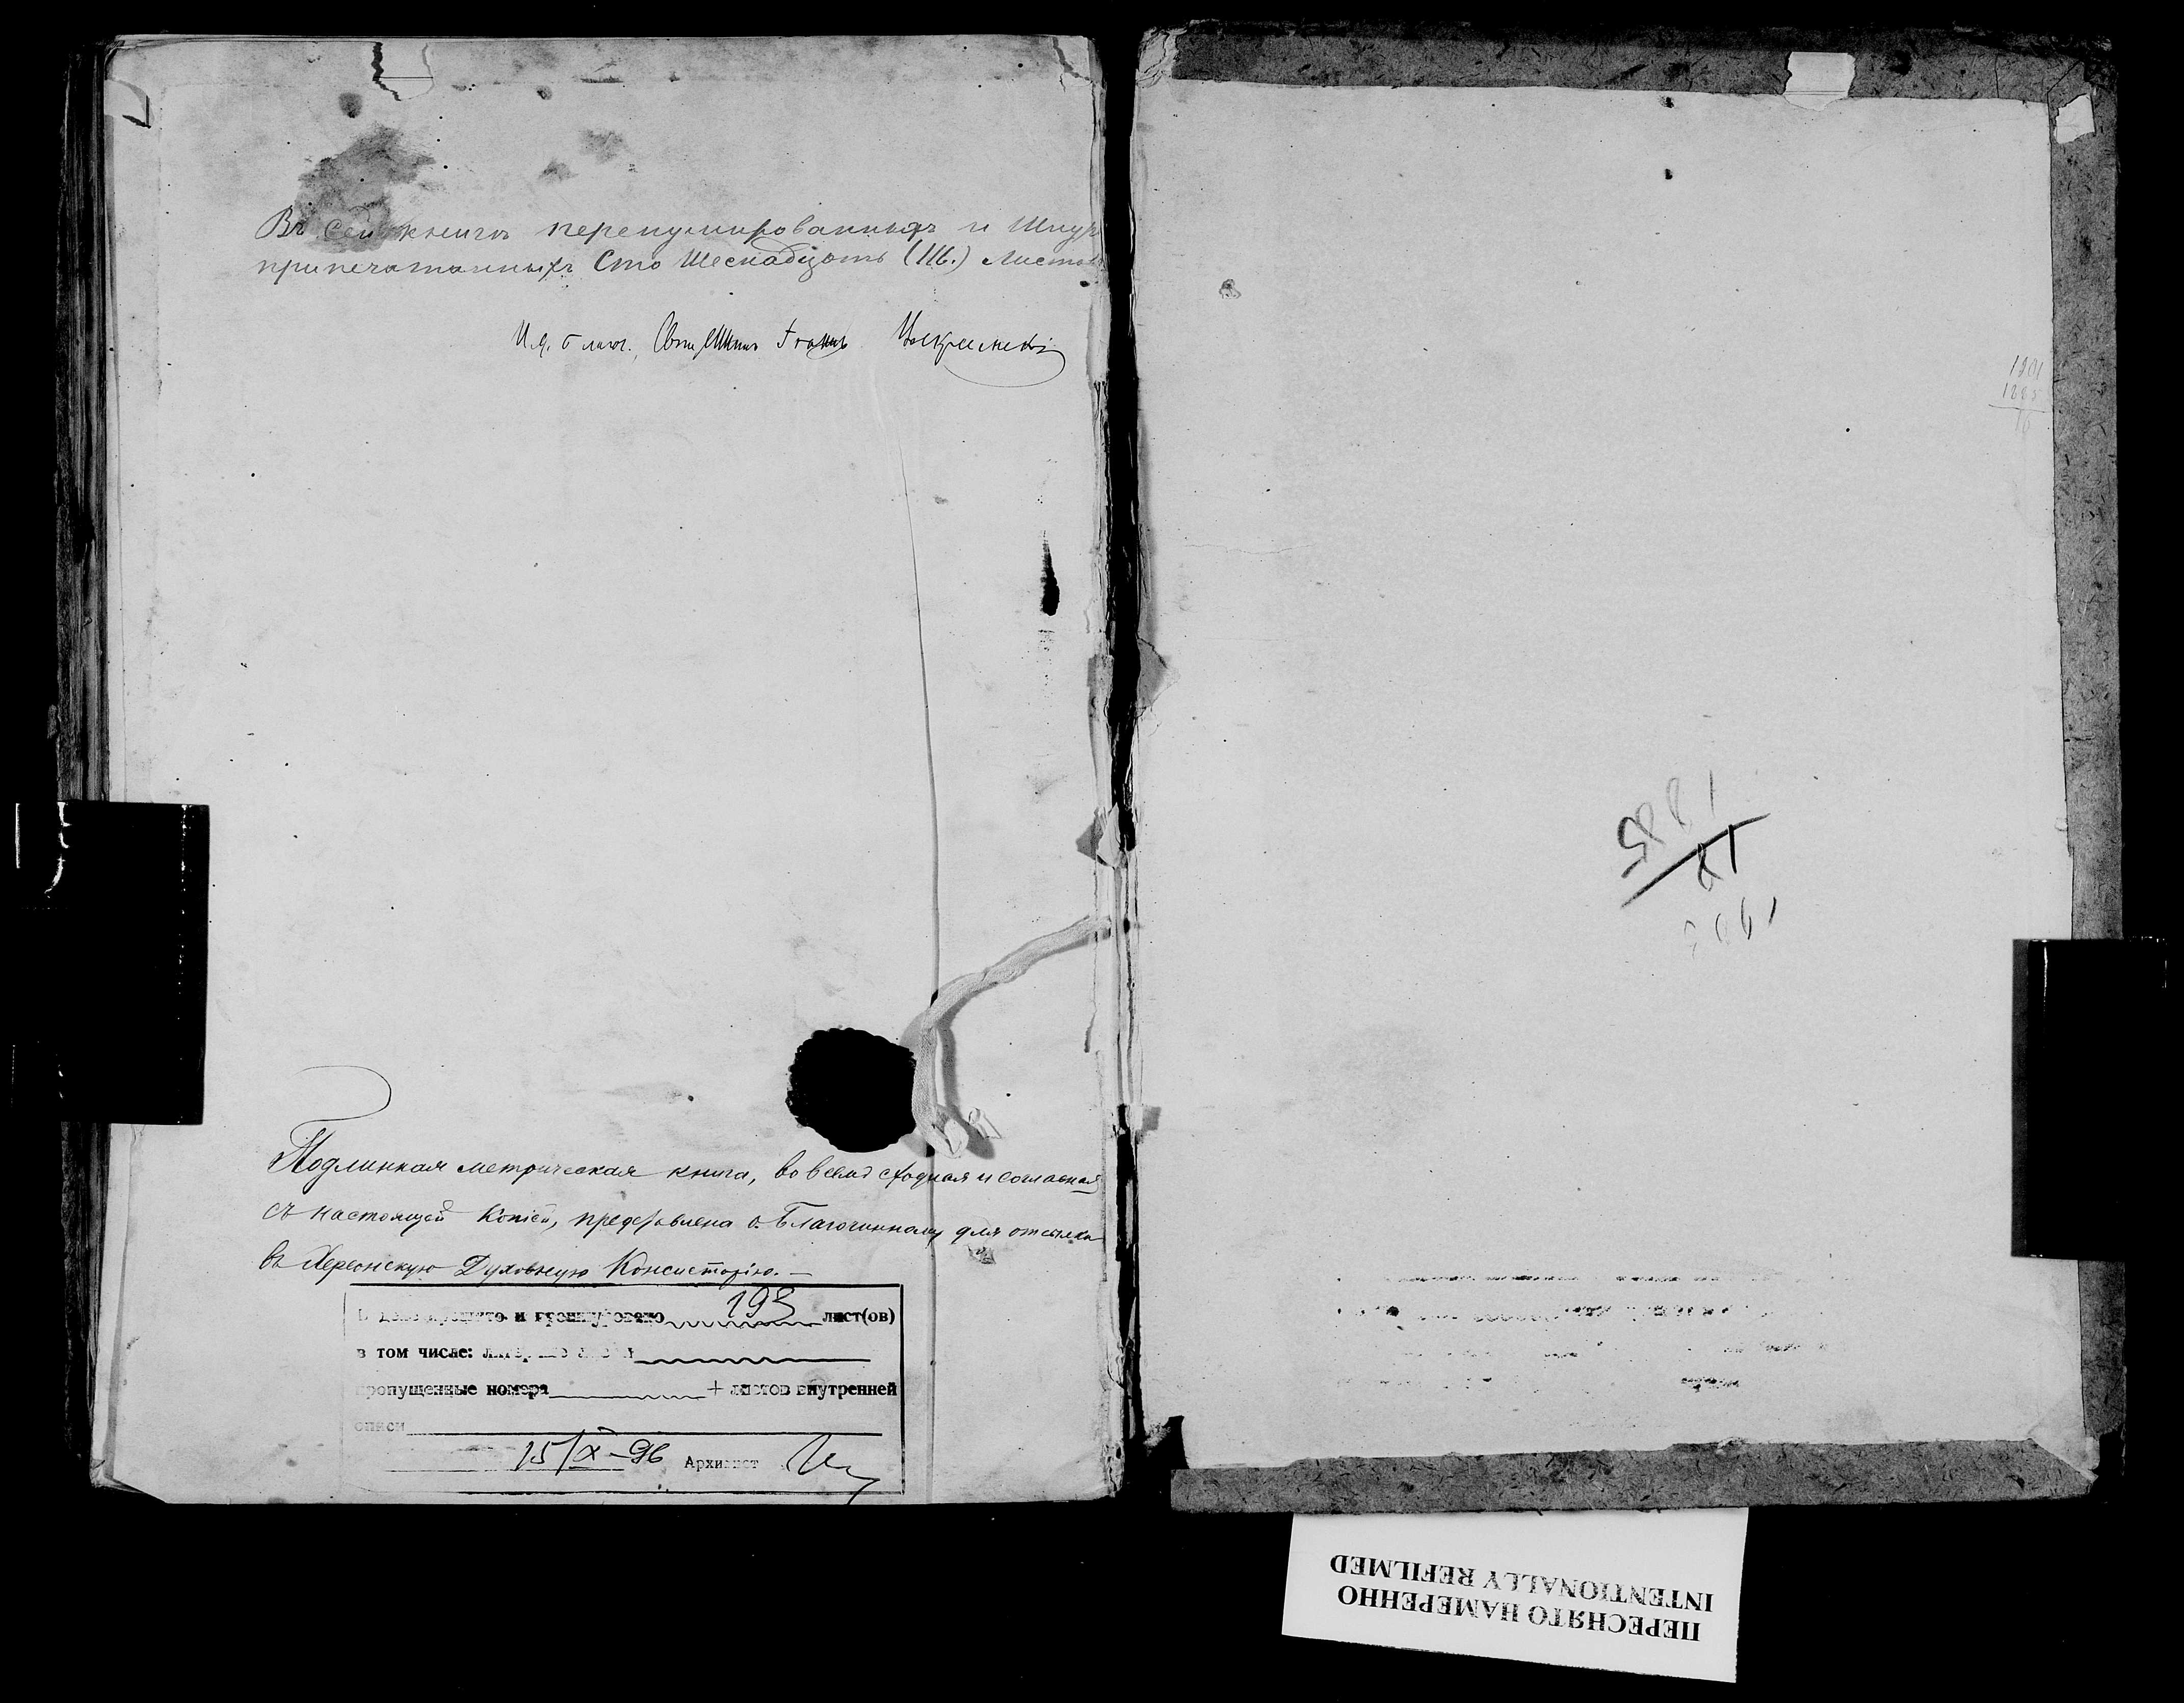 Въ сей книгѣ перенумированныхъ и Шнур
припечатанныхъ Сто Шеснадцать (116.) Листов
И.д. Благоч. Священникъ Іоаннъ
Подлинная метрическая книга, во всемъ сходная и согласная
съ настоящей копіей, представлена о. Благочинному для отсылки
въ Херсонскую Духовную Консисторію. —
и пронумеровано 193 лист(ов)
в том числе:
пропущенные номера + листов внутренней
описи
15/X-96 Архивист
1901
1885
1885
18
1903
ПЕРЕСНЯТО НАМЕРЕННО
INTENTIONALLY REFILMED